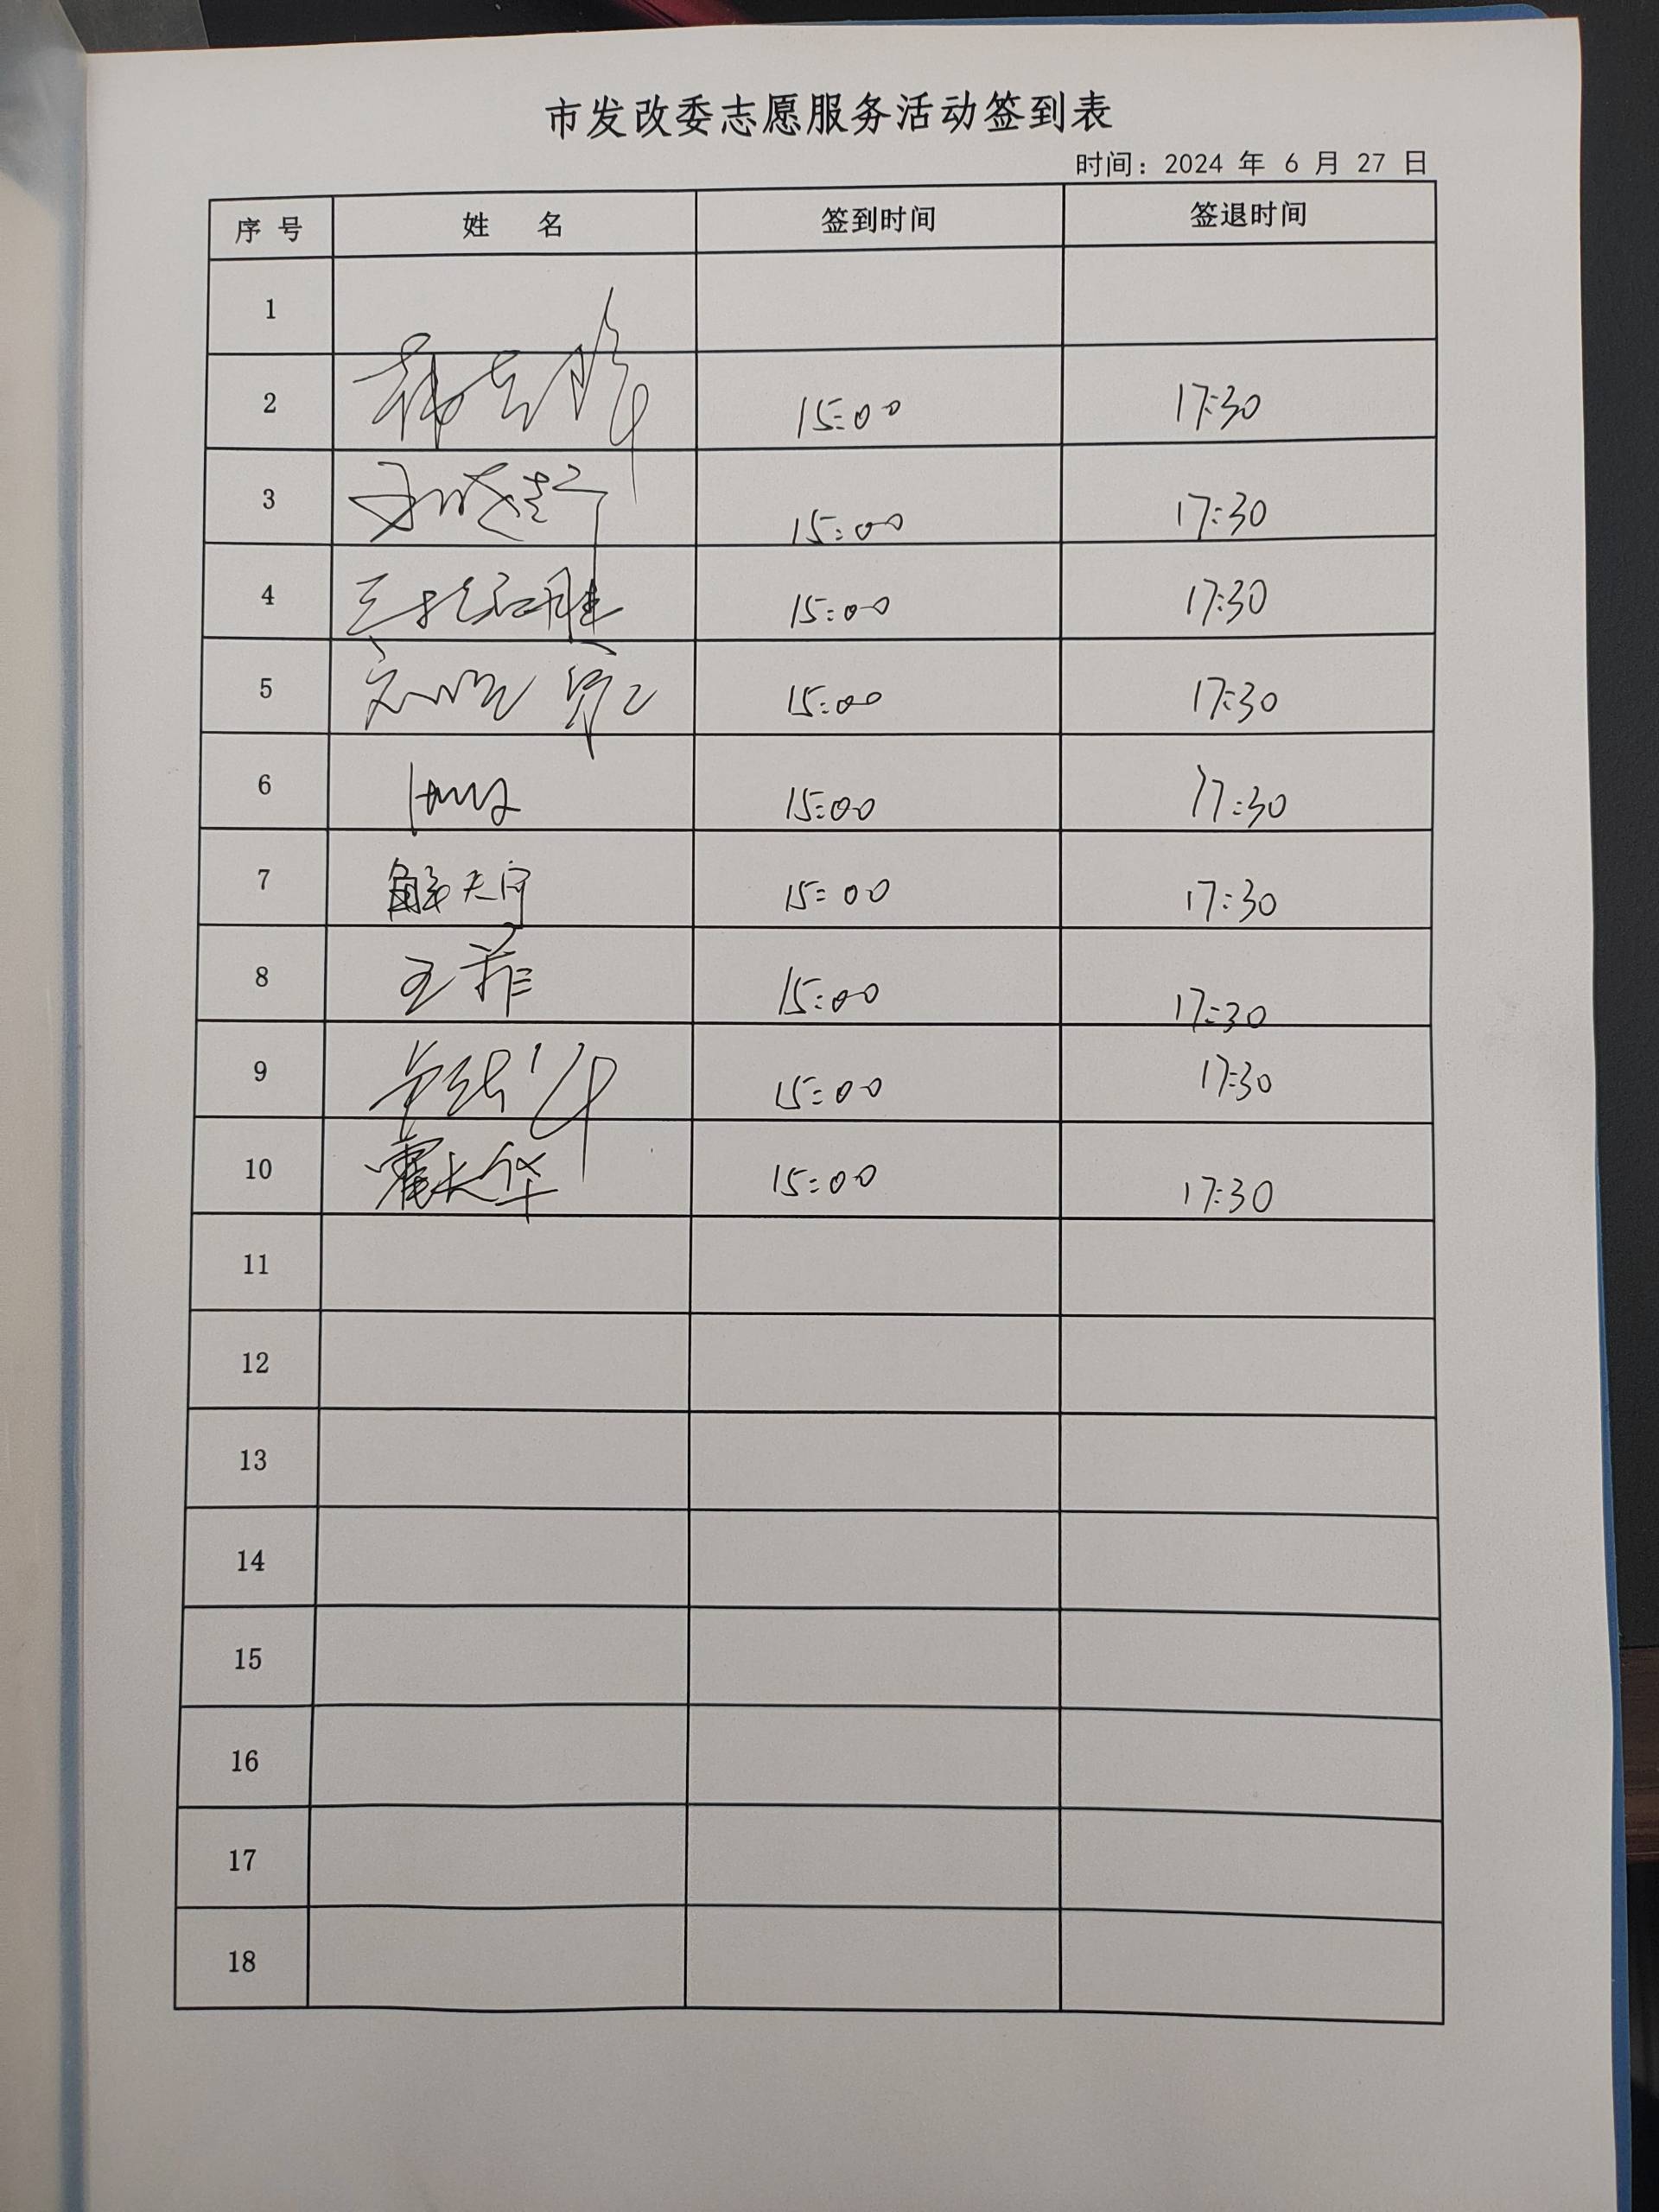 市发改委志愿服务活动签到表
时间：2024 年 6 月 27 日
序 号 姓 名 签到时间 签退时间
1
2 15:00 17:30
3 15:00 17:30
4 15:00 17:30
5 15:00 17:30
6 15:00 17:30
7 解天宇 15:00 17:30
8 王菲 15:00 17:30
9 15:00 17:30
10 霍大华 15:00 17:30
11
12
13
14
15
16
17
18